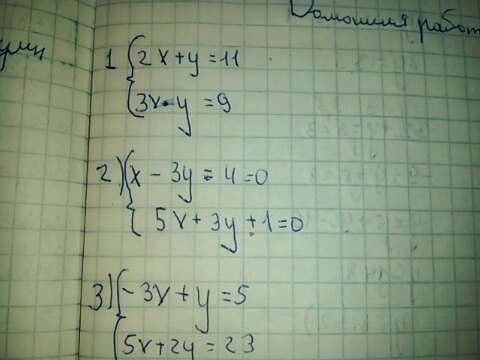 Домашняя работ
1 { 2x+y=11
3x-y=9
2) { x-3y=4=0
5x+3y+1=0
3) { -3x+y=5
5x+2y=23